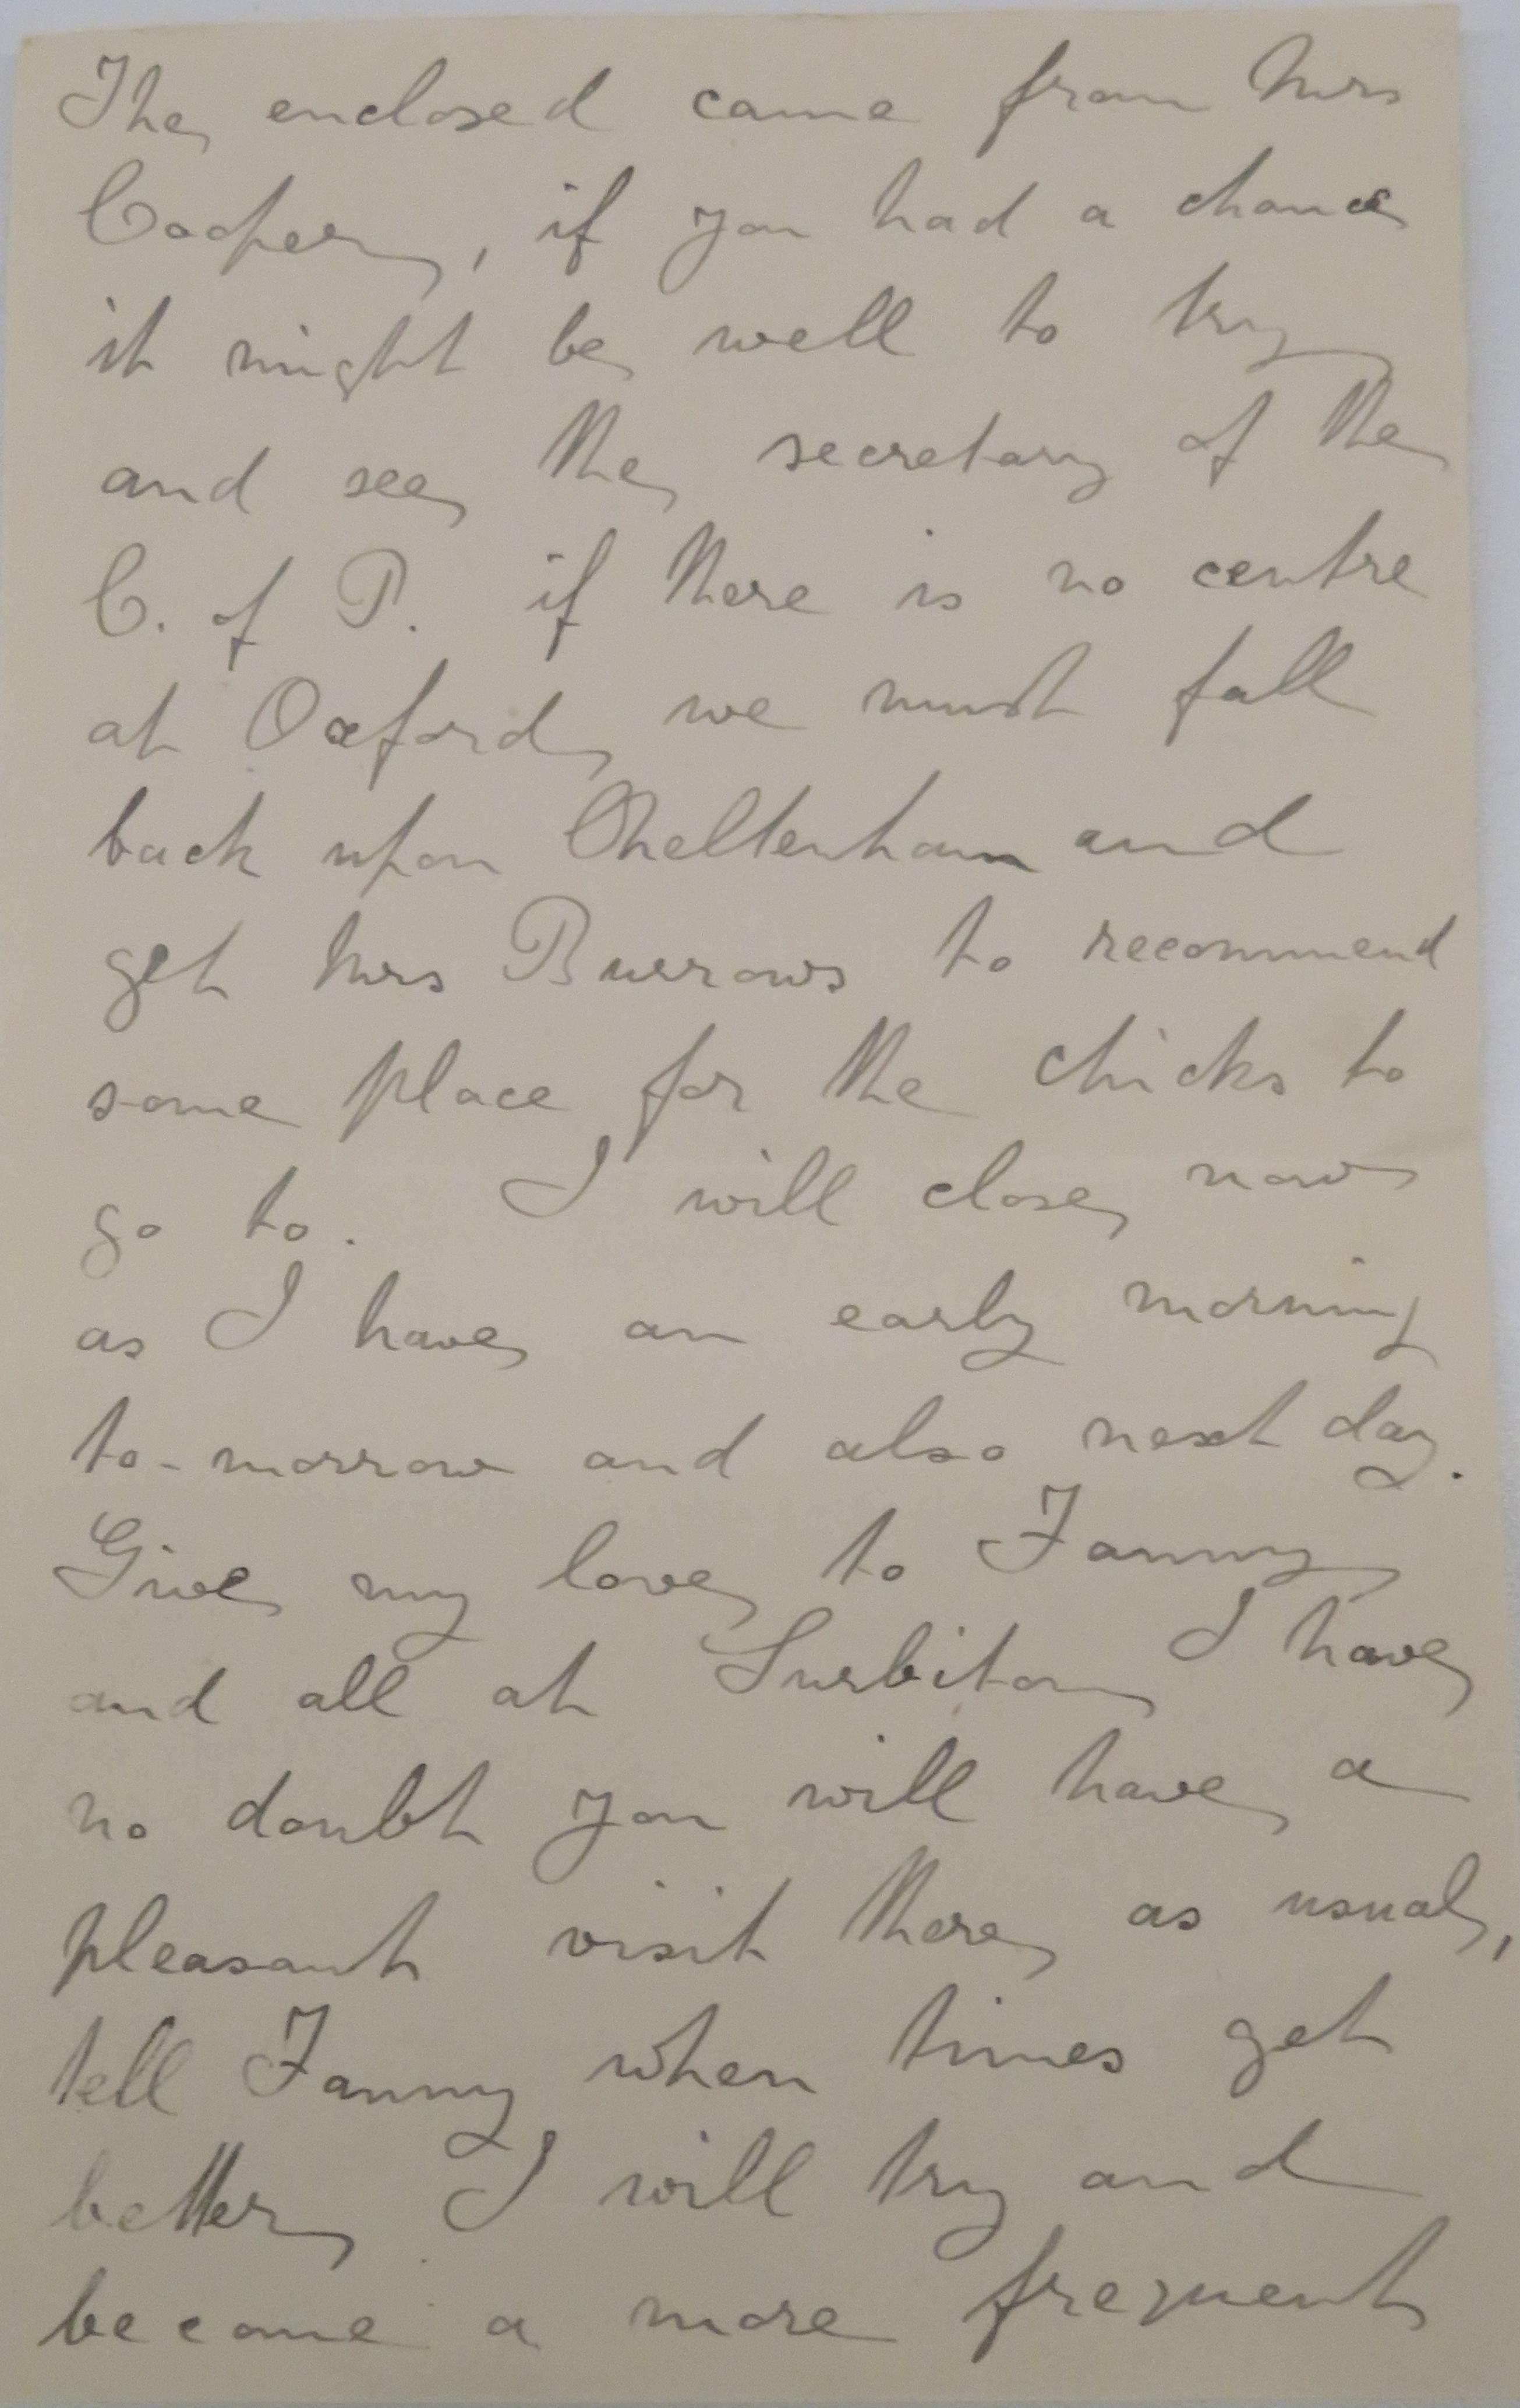 The enclosed came from Mrs
Cooper, if you had a chance
it might be well to try
and see the secretary of the
C. of P. if there is no centre
at Oxford we must fall
back upon Cheltenham and
get Mrs Burrows to recommend
some place for the chicks to
go to. I will close now
as I have an early morning
to-morrow and also next day.
Give my love to Fanny
and all at Surbiton I have
no doubt you will have a
pleasant visit there as usual,
tell Fanny when times get
better I will try and
become a more frequent